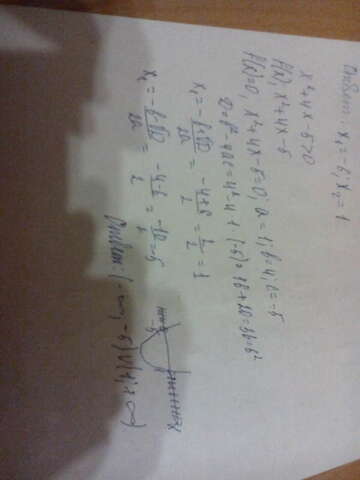 Ответ: x₁ = -5; x₂ = 1
x²+4x-5>0
f(x), x²+4x-5
f(x)=0, x²+4x-5=0; a=1; b=4; c=-5
D=b²-4ac=4²-4·1·(-5)=16+20=36=6²
x₁ = (-b+√D)/2a = (-4+6)/2 = 2/2 = 1
x₁ = (-b-√D)/2a = (-4-6)/2 = -10/2 = -5
-5 1 x
Ответ: (-∞; -5)U(1; +∞)